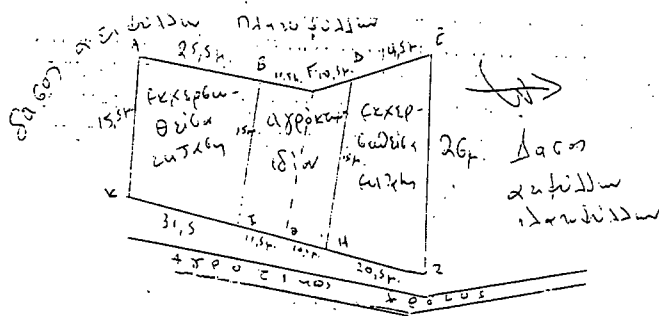 δάσος αειφύλλων πλατυφύλλων
A 25,5μ. B 11,5μ. Γ 10,5μ. D 14,5μ. E
15,5μ.
εκχερσω-
θείσα
έκταση
15μ.
αγρόκτημ-
ίδιον
15μ.
εκχερ-
σωθείσα
έκταση
26μ.
Δάσος
αειφύλλων
πλατυφύλλων
K 31,5 I 11,5μ. Θ 10,5μ. H 20,5μ. Z
Αγροτικός δρόμος